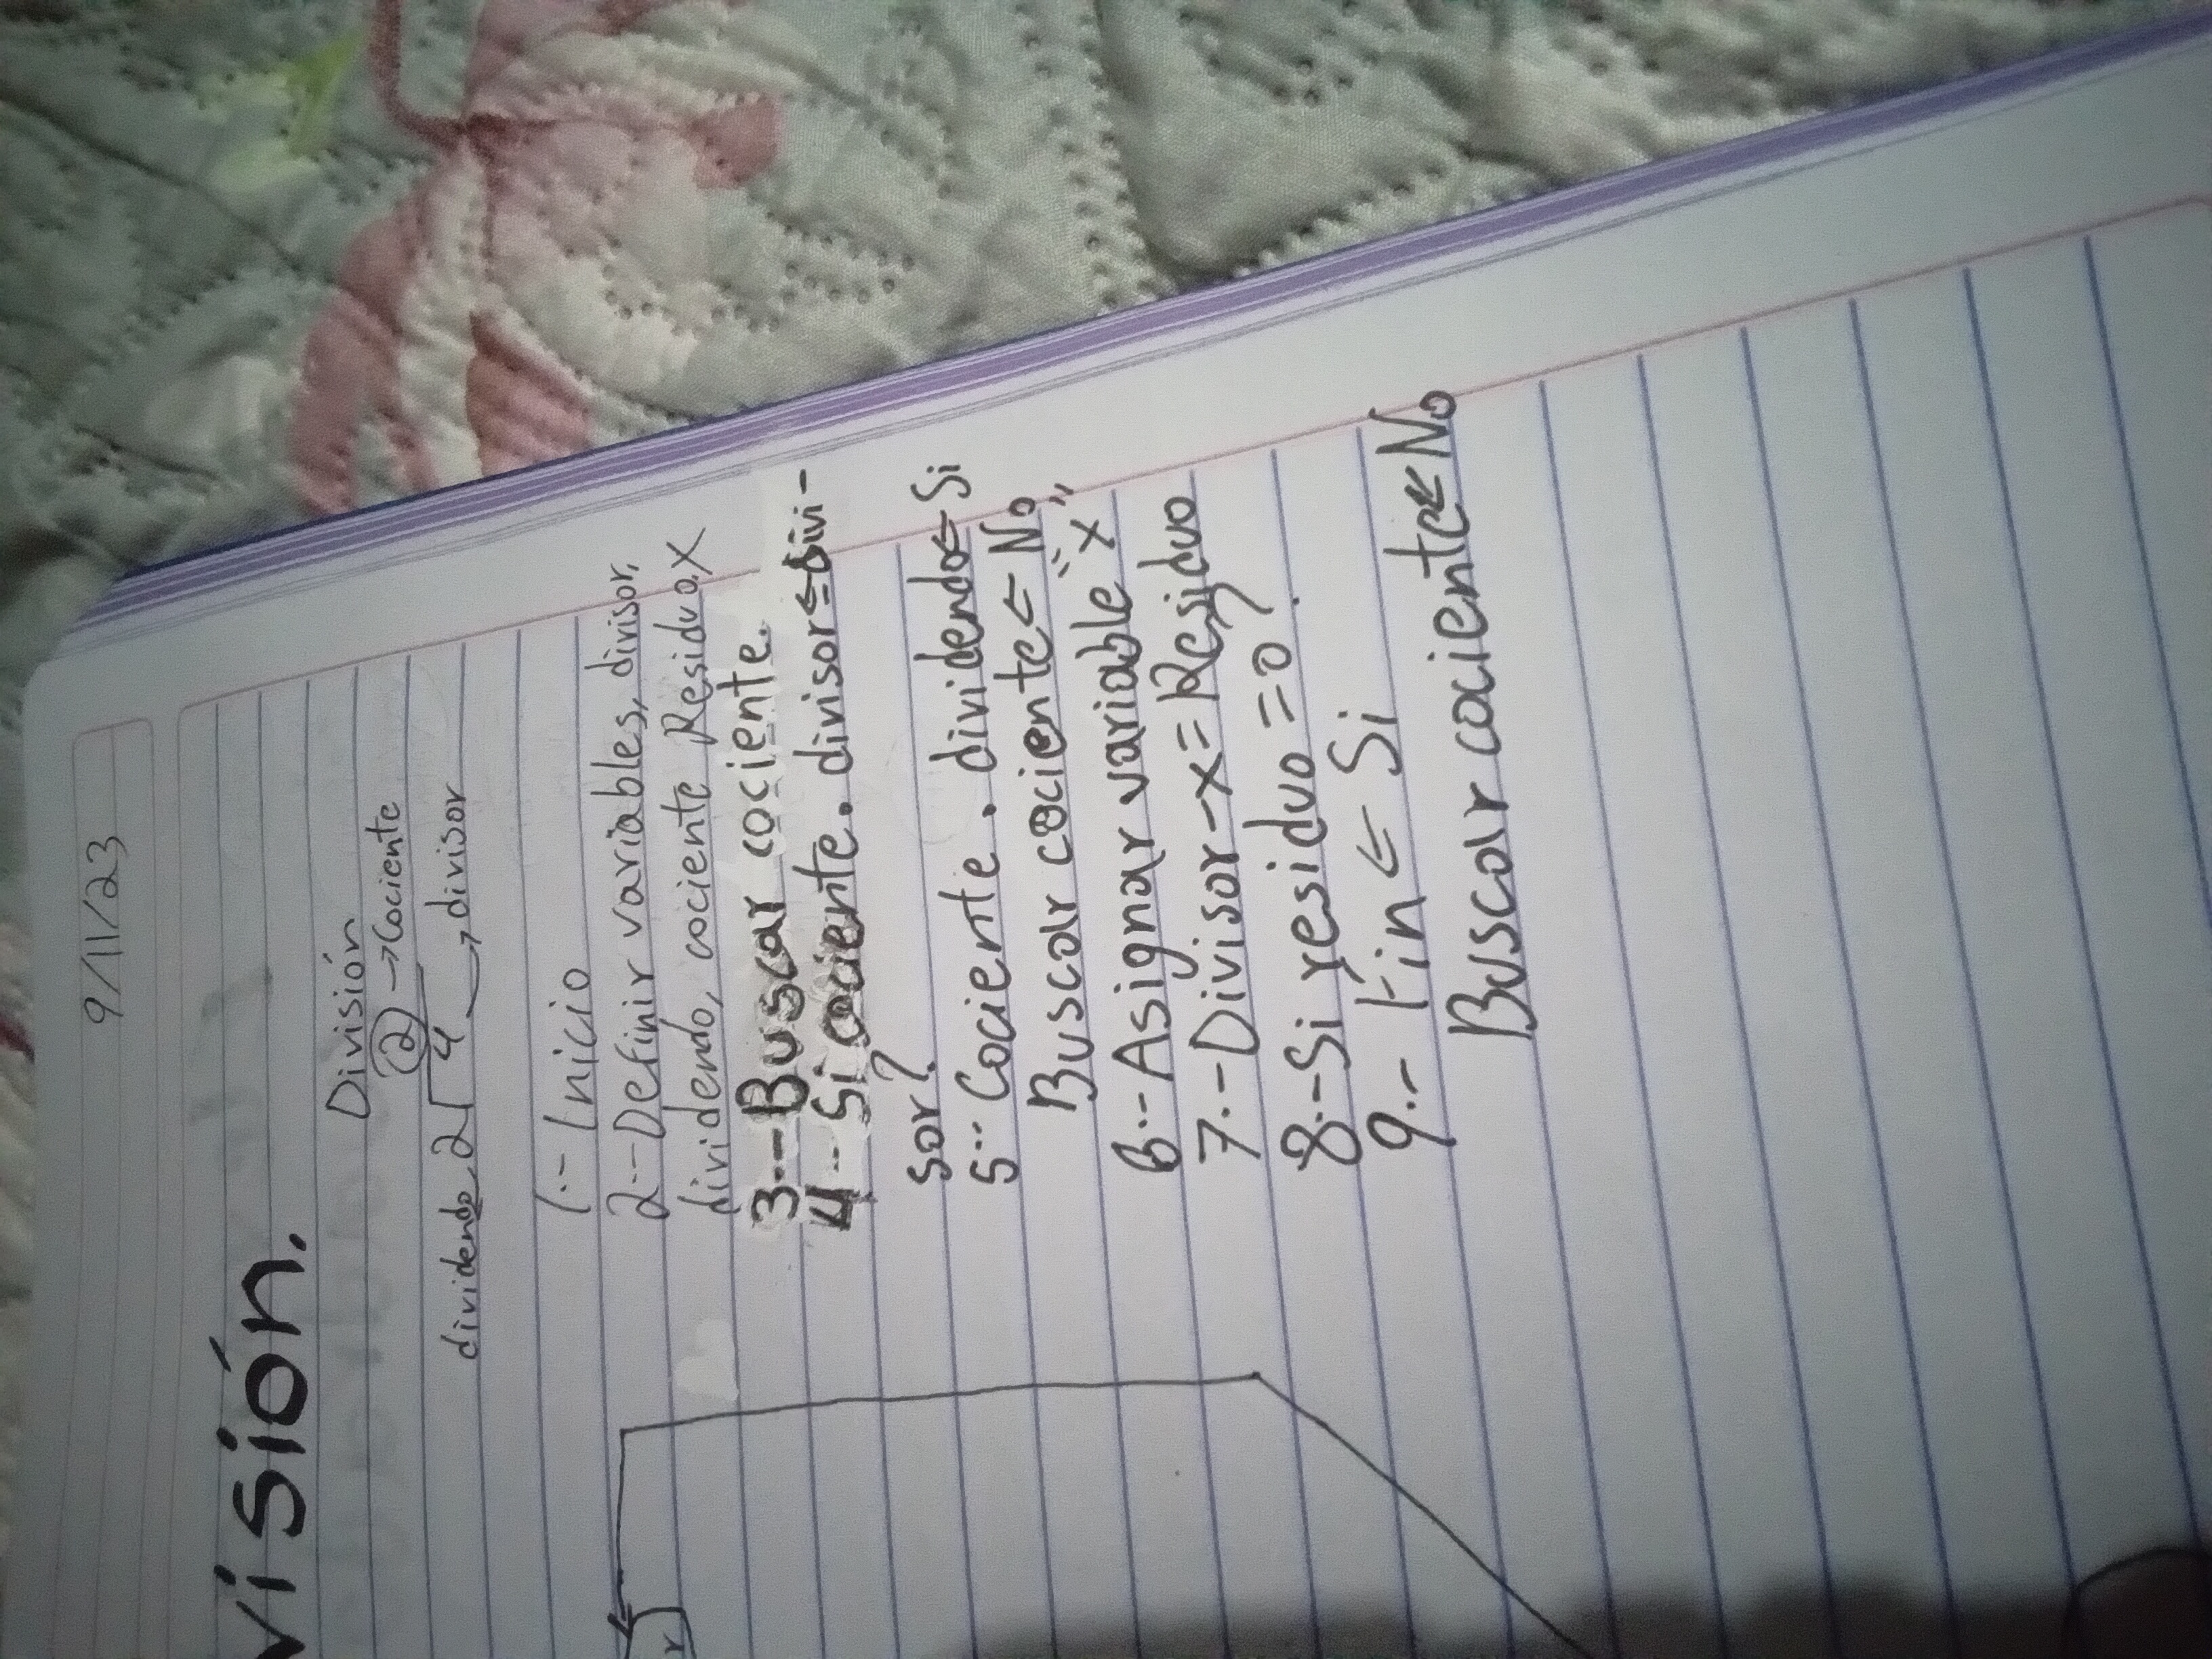 9/11/23
visión.
División
2 → Cociente
dividendo 2 4 → divisor
1.- Inicio
2.- Definir variables, divisor,
dividendo, cociente Residuo, X
3.- Buscar cociente.
4.- Si cociente. divisor ≤ divi-
sor?
5.- Cociente. dividendo ⇐ Si
Buscar cociente ⇐ No
6.- Asignar variable "x"
7.- Divisor - x = Residuo
8.- Si residuo = 0?
9.- Fin ⇐ Si
Buscar cociente ⇐ No
r